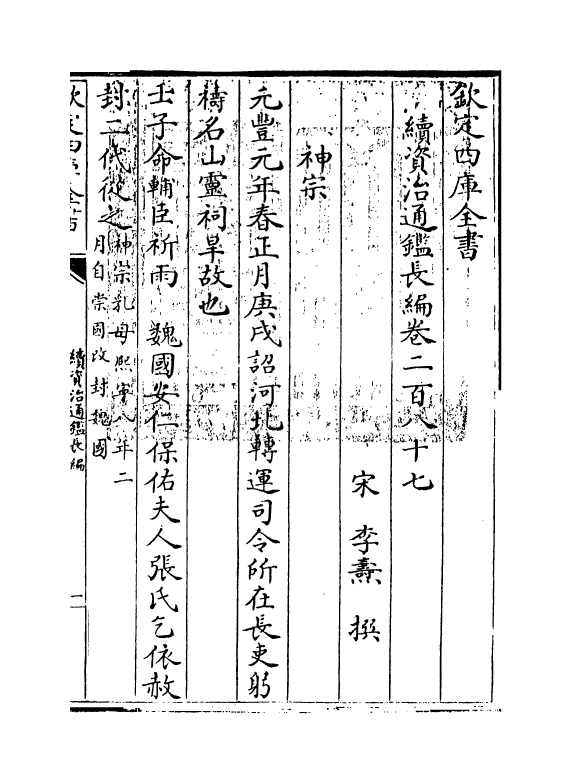 欽定四庫全書
續資治通鑑長編卷二百八十七
宋 李燾 撰
神宗
元豐元年春正月庚戌詔河北轉運司令所在長吏躬
禱名山靈祠旱故也
壬子命輔臣祈雨 魏國安仁保佑夫人張氏乞依赦
封二代從之神宗乳母熙寧八年二
月自崇國改封魏國
欽定四庫全書
續資治通鑑長編